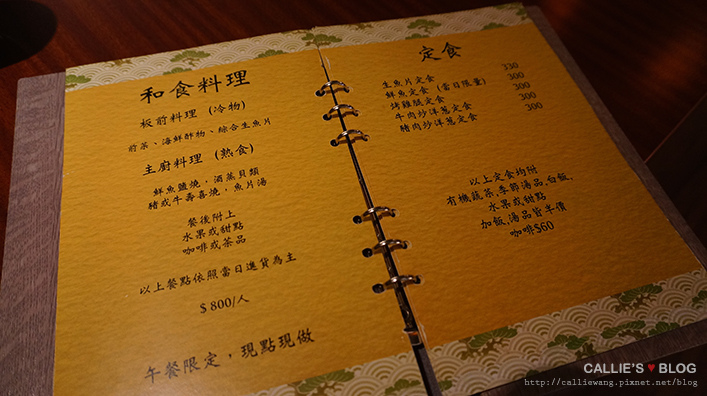 和食料理
板前料理 (冷物)
前菜、海鮮酢物、綜合生魚片
主廚料理 (熟食)
鮮魚鹽燒，酒蒸貝類
豬或牛壽喜燒，魚片湯
餐後附上
水果或甜點
咖啡或茶品
以上餐點依照當日進貨為主
$800/人
午餐限定，現點現做
定食
生魚片定食 330
鮮魚定食 (當日限量) 300
烤雞腿定食 300
牛肉炒洋蔥定食 300
豬肉炒洋蔥定食 300
以上定食均附
有機蔬菜,季節湯品,白飯,
水果或甜點
加飯,湯品皆半價
咖啡$60
CALLIE'S♥BLOG
http://calliewang.pixnet.net/blog